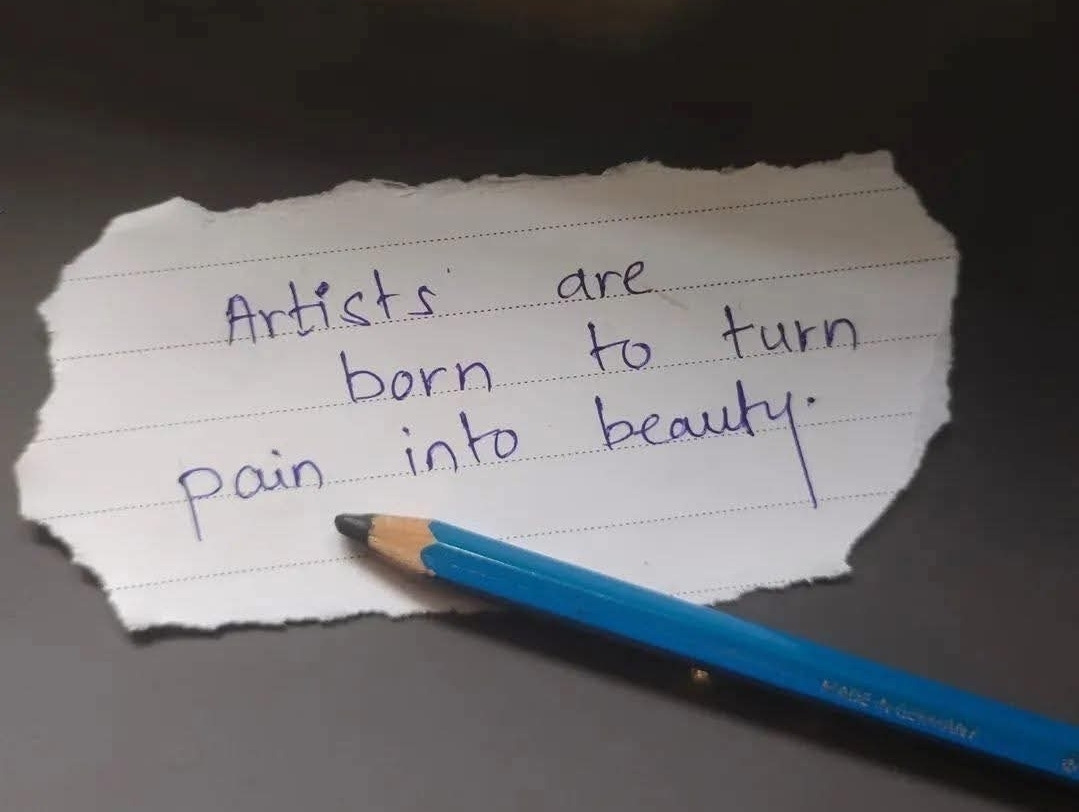 Artists are
born to turn
pain into beauty.
MADE IN GERMANY